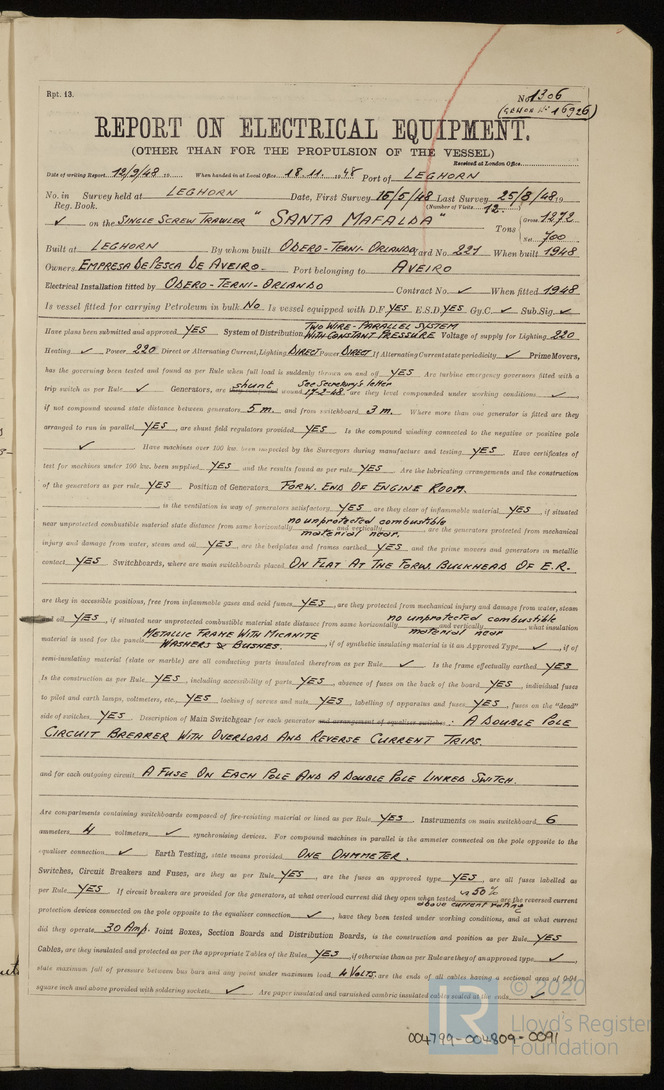 Rpt. 13.
No. 1306
(GENOA No 16926)
REPORT ON ELECTRICAL EQUIPMENT.
(OTHER THAN FOR THE PROPULSION OF THE VESSEL)
Received at London Office
Date of writing Report 12/9/48 19 When handed in at Local Office 18.11.1948 Port of LEGHORN
No. in Survey held at LEGHORN Date, First Survey 15/5/48 Last Survey 25/8/48 19
Reg. Book. (Number of Visits 12)
✓ on the SINGLE SCREW TRAWLER "SANTA MAFALDA" Tons Gross 1272
Net 700
Built at LEGHORN By whom built ODERO-TERNI-ORLANDO Yard No. 221 When built 1948
Owners EMPRESA DE PESCA DE AVEIRO Port belonging to AVEIRO
Electrical Installation fitted by ODERO-TERNI-ORLANDO Contract No. ✓ When fitted 1948
Is vessel fitted for carrying Petroleum in bulk NO Is vessel equipped with D.F. YES E.S.D. YES Gy.C. ✓ Sub.Sig. ✓
Have plans been submitted and approved YES System of Distribution TWO WIRE-PARALLEL SYSTEM WITH CONSTANT PRESSURE Voltage of supply for Lighting 220
Heating ✓ Power 220 Direct or Alternating Current, Lighting DIRECT Power DIRECT If Alternating Current state periodicity ✓ Prime Movers,
has the governing been tested and found as per Rule when full load is suddenly thrown on and off YES Are turbine emergency governors fitted with a
trip switch as per Rule ✓ Generators, are they shunt wound See Secretary's letter 17-2-48 are they level compounded under working conditions ✓
if not compound wound state distance between generators 5 m. and from switchboard 3 m. Where more than one generator is fitted are they
arranged to run in parallel YES, are shunt field regulators provided YES Is the compound winding connected to the negative or positive pole
✓ Have machines over 100 kw. been inspected by the Surveyors during manufacture and testing YES Have certificates of
test for machines under 100 kw. been supplied YES and the results found as per rule YES Are the lubricating arrangements and the construction
of the generators as per rule YES Position of Generators FORW. END OF ENGINE ROOM.
is the ventilation in way of generators satisfactory YES are they clear of inflammable material YES, if situated
near unprotected combustible material state distance from same horizontally no unprotected combustible and vertically material near. are the generators protected from mechanical
injury and damage from water, steam and oil YES are the bedplates and frames earthed YES and the prime movers and generators in metallic
contact YES Switchboards, where are main switchboards placed ON FLAT AT THE FORW. BULKHEAD OF E.R.
are they in accessible positions, free from inflammable gases and acid fumes YES, are they protected from mechanical injury and damage from water, steam
and oil YES, if situated near unprotected combustible material state distance from same horizontally no unprotected combustible and vertically material near what insulation
material is used for the panels METALLIC FRAME WITH MICANITE WASHERS & BUSHES, if of synthetic insulating material is it an Approved Type ✓, if of
semi-insulating material (slate or marble) are all conducting parts insulated therefrom as per Rule ✓ Is the frame effectually earthed YES
Is the construction as per Rule YES, including accessibility of parts YES, absence of fuses on the back of the board YES, individual fuses
to pilot and earth lamps, voltmeters, etc. YES locking of screws and nuts YES, labelling of apparatus and fuses YES, fuses on the "dead"
side of switches YES Description of Main Switchgear for each generator and arrangement of equaliser switches: A DOUBLE POLE
CIRCUIT BREAKER WITH OVERLOAD AND REVERSE CURRENT TRIPS.
and for each outgoing circuit A FUSE ON EACH POLE AND A DOUBLE POLE LINKED SWITCH.
Are compartments containing switchboards composed of fire-resisting material or lined as per Rule YES Instruments on main switchboard 6
ammeters 4 voltmeters ✓ synchronising devices. For compound machines in parallel is the ammeter connected on the pole opposite to the
equaliser connection ✓ Earth Testing, state means provided ONE OHMMETER.
Switches, Circuit Breakers and Fuses, are they as per Rule YES, are the fuses an approved type YES, are all fuses labelled as
per Rule YES If circuit breakers are provided for the generators, at what overload current did they open when tested 50% above current rating, are the reversed current
protection devices connected on the pole opposite to the equaliser connection ✓, have they been tested under working conditions, and at what current
did they operate 30 Amp. Joint Boxes, Section Boards and Distribution Boards, is the construction and position as per Rule YES
Cables, are they insulated and protected as per the appropriate Tables of the Rules YES, if otherwise than as per Rule are they of an approved type ✓
state maximum fall of pressure between bus bars and any point under maximum load 4 VOLTS. are the ends of all cables having a sectional area of 0.04
square inch and above provided with soldering sockets ✓ Are paper insulated and varnished cambric insulated cables sealed at the ends ✓
© 2020
LR
Lloyd's Register
Foundation
004799-004809-0091